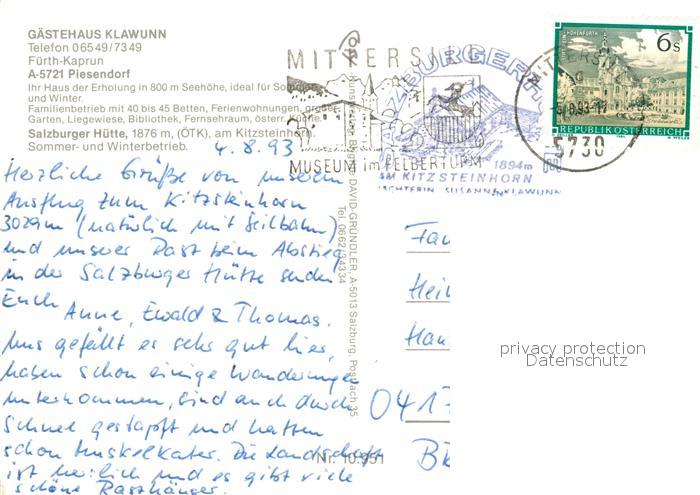 GÄSTEHAUS KLAWUNN
Telefon 06549/7349
Fürth-Kaprun
A-5721 Piesendorf
Ihr Haus der Erholung in 800 m Seehöhe, ideal für Sommer
und Winter.
Familienbetrieb mit 40 bis 45 Betten, Ferienwohnungen, großer
Garten, Liegewiese, Bibliothek, Fernsehraum, österr. Küche.
Salzburger Hütte, 1876 m, (ÖTK), am Kitzsteinhorn
Sommer- und Winterbetrieb.
MITTERSILL
MUSEUM im FELBERTURM
SALZBURGERHÜTTE
1894m
AM KITZSTEINHORN
SUSANNE KLAWUNN
6 S
REPUBLIK ÖSTERREICH
MITTERSILL
5730
4.8.93
Herzliche Grüße von unserem
Ausflug zum Kitzsteinhorn
3029m (natürlich mit Seilbahn)
und unserer Rast beim Abstieg
in der Salzburger Hütte senden
Euch Anne, Ewald & Thomas.
Uns gefällt es sehr gut hier,
haben schon einige Wanderungen
unternommen, sind auch durch
Schnee gestapft und hatten
schon Muskelkater. Die Landschaft
ist herrlich und es gibt viele
schöne Rasthäuser.
DAVID-GRÜNDLER, A-5013 Salzburg, Postfach 35
Tel. 0662/34334
Nr. 10.951
Fam
Hein
Han
0417
privacy protection
Datenschutz